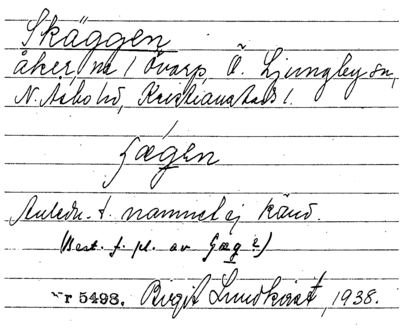 Skäggen
åker, nr 1 Övarp, Ö. Ljungby sn,
N. Åsbo hd, Kristianstads l.
gen
Anledn. t. namnet ej känd.
(Best. f. pl. av
Nr 5498. Birgit Lundkvist, 1938.